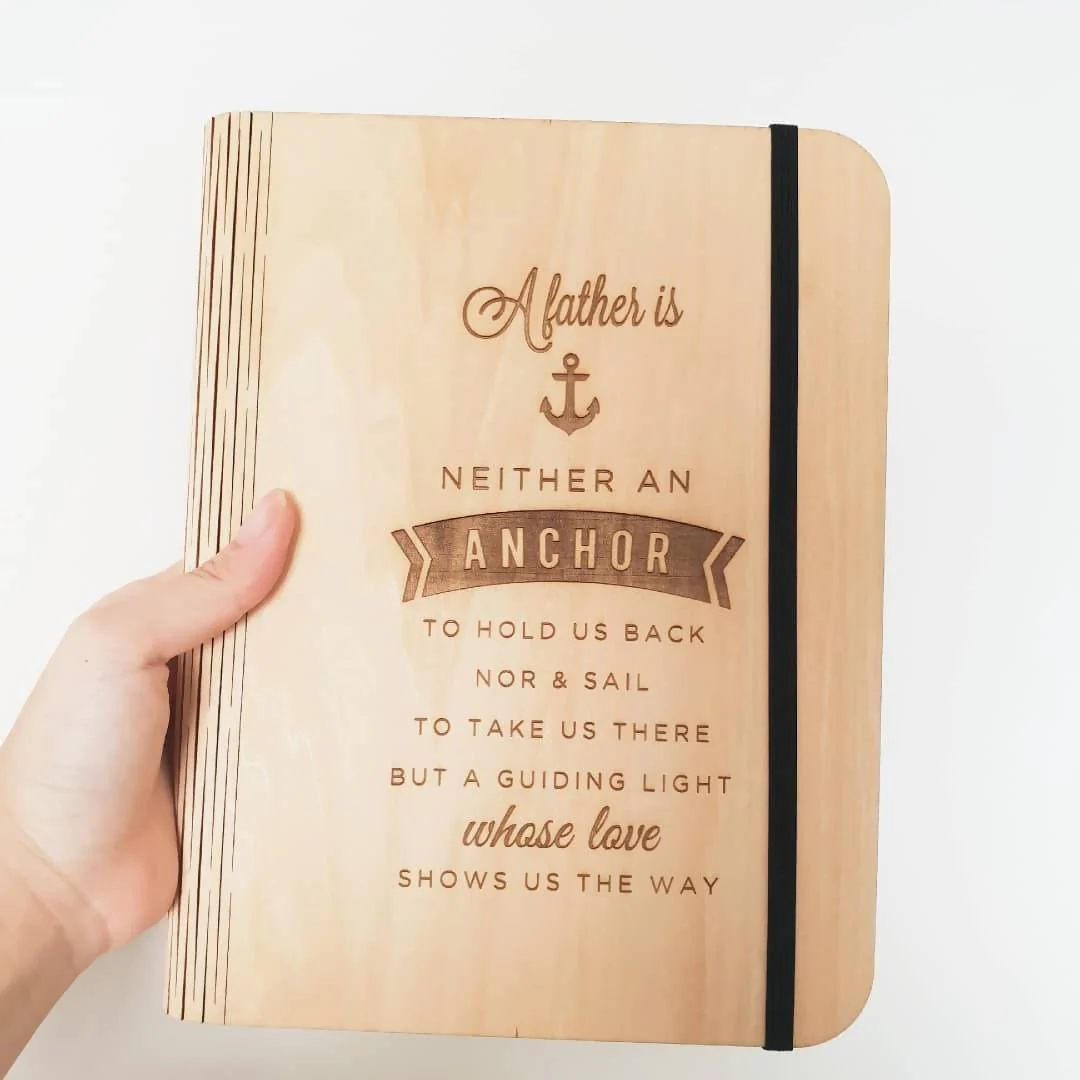 A father is
NEITHER AN
ANCHOR
TO HOLD US BACK
NOR & SAIL
TO TAKE US THERE
BUT A GUIDING LIGHT
whose love
SHOWS US THE WAY